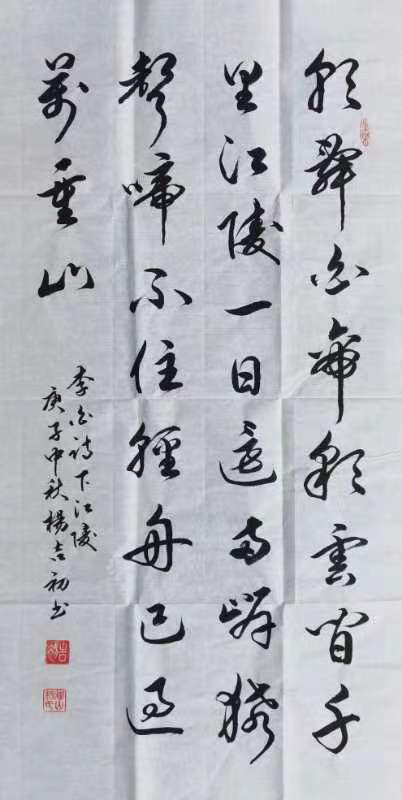 朝辭白帝彩雲間千
里江陵一日還兩岸猿
聲啼不住輕舟已過
萬重山
李白詩下江陵
庚子中秋楊吉初书